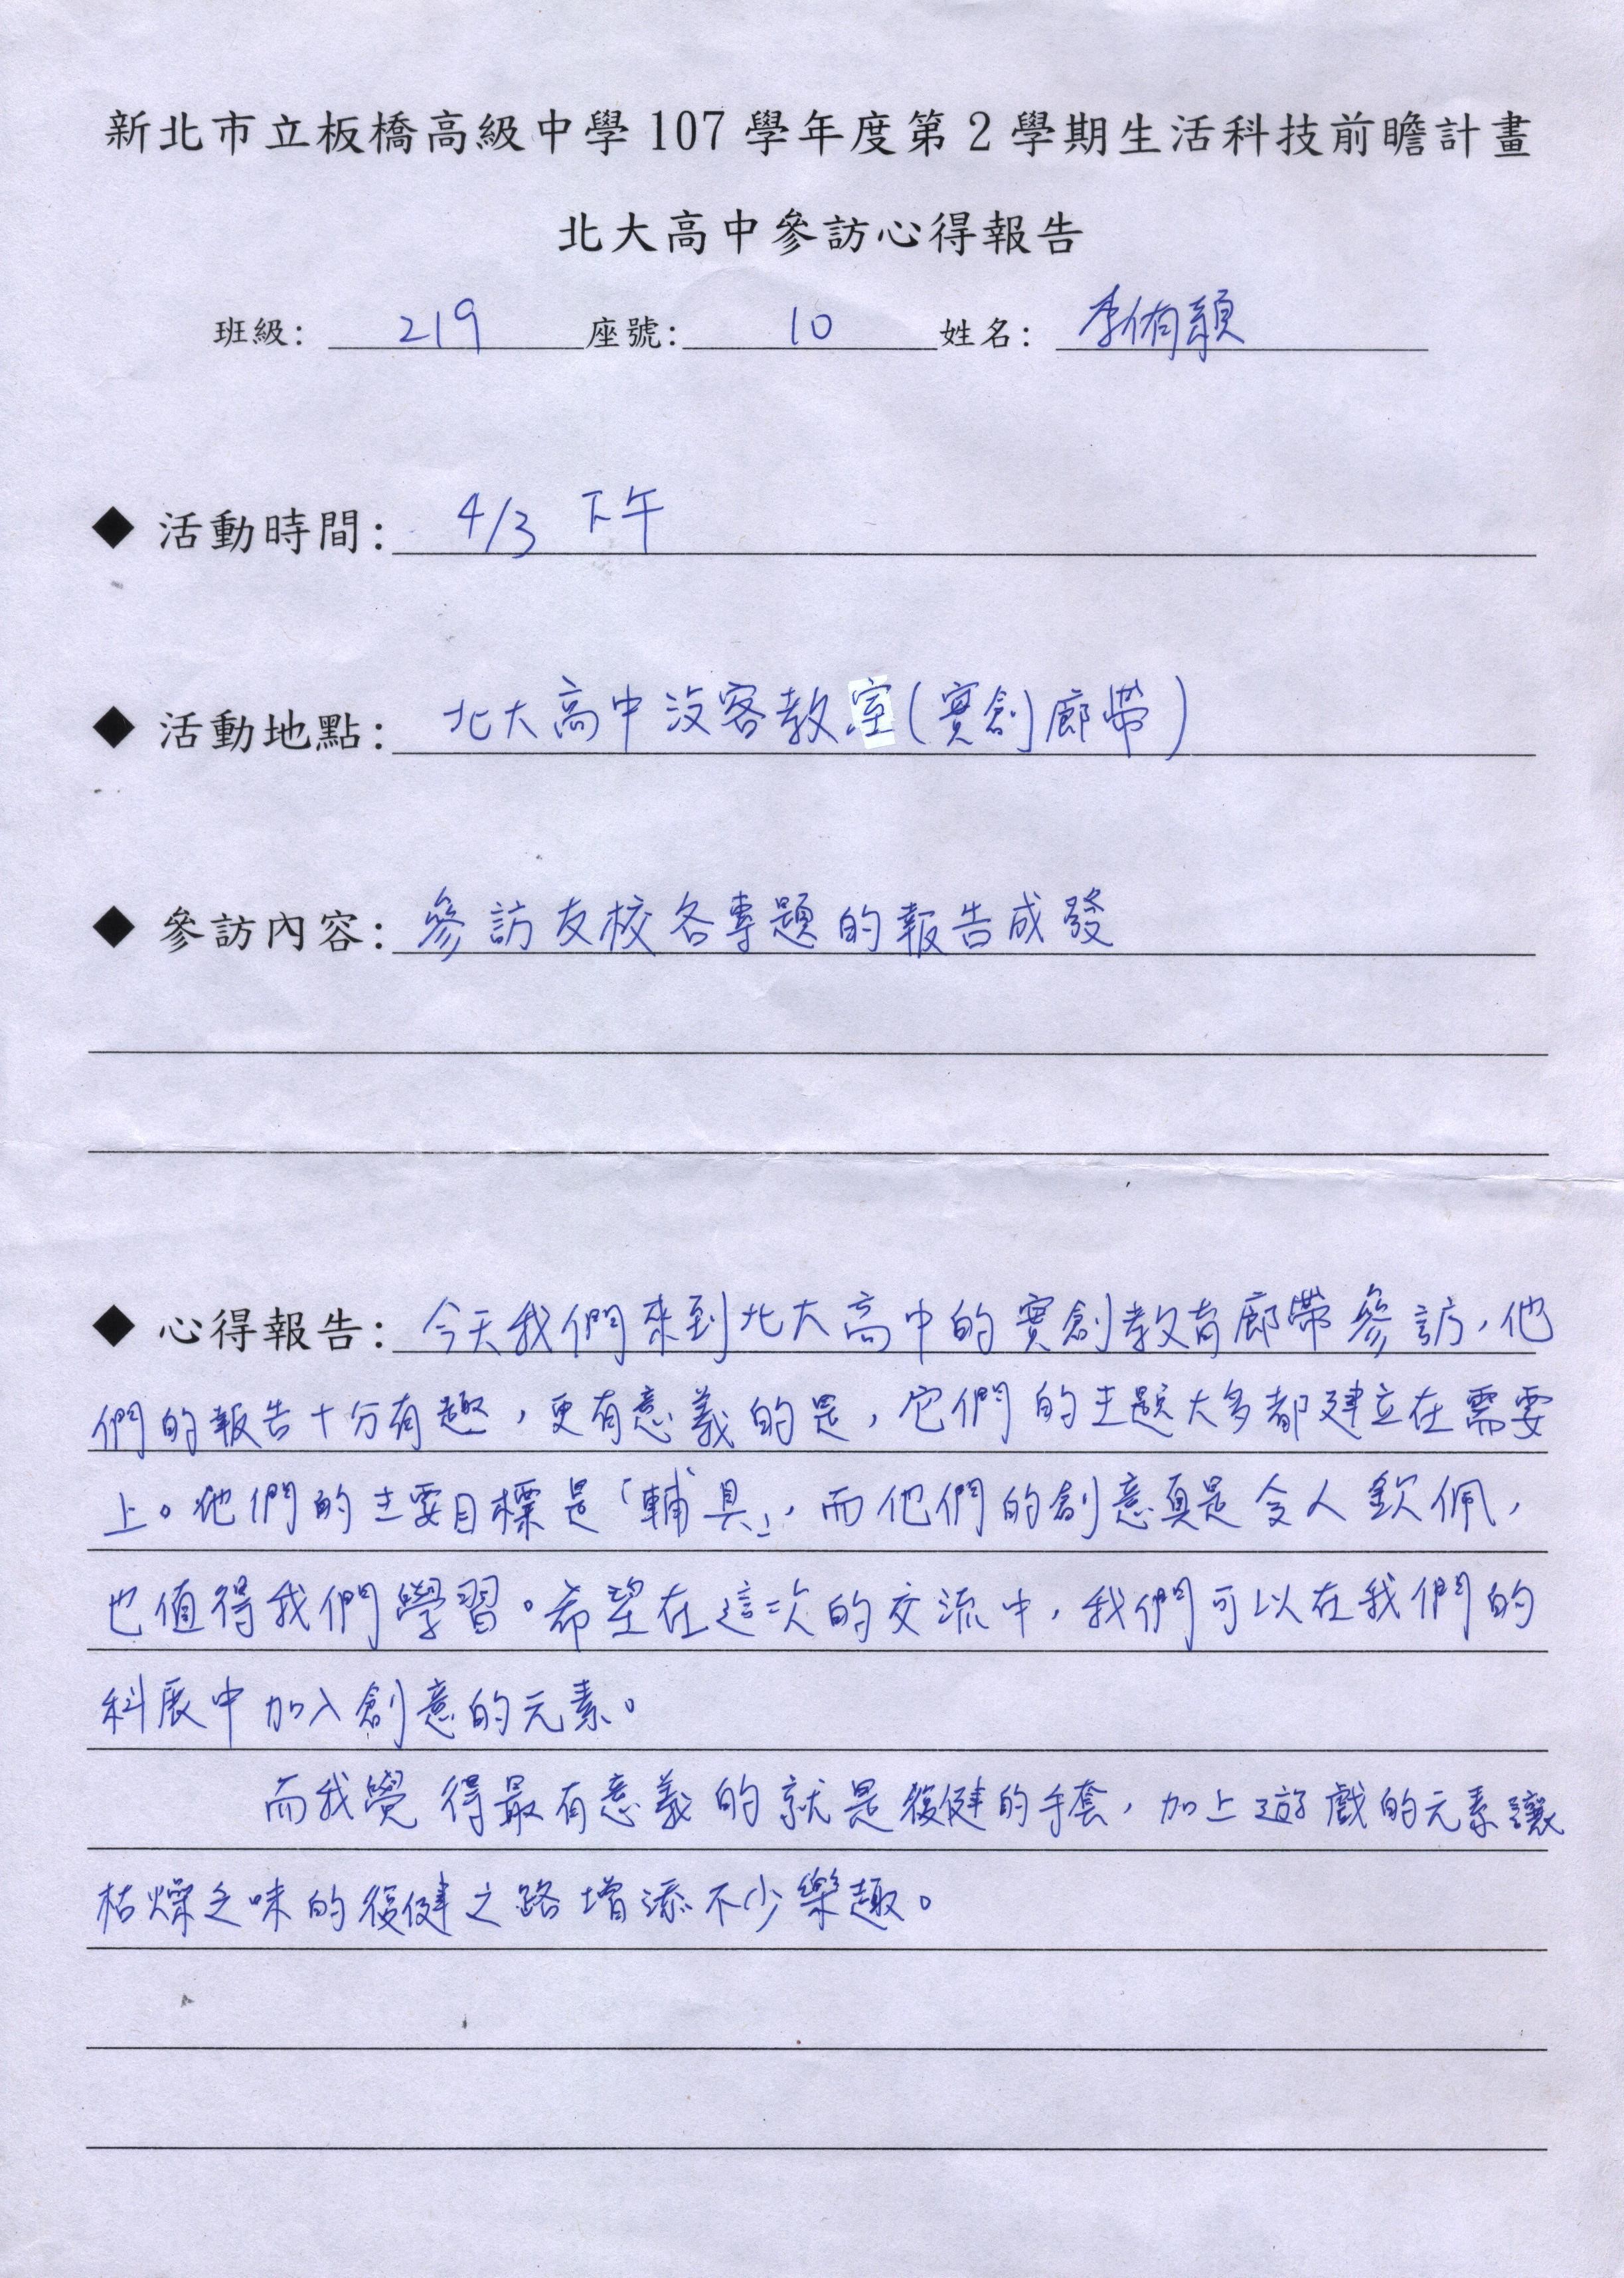 新北市立板橋高級中學107學年度第2學期生活科技前瞻計畫
北大高中參訪心得報告
班級: 219 座號: 10 姓名: 李侑穎
◆ 活動時間: 4/3 下午
◆ 活動地點: 北大高中沒客教室(實創廊帶)
◆ 參訪內容: 參訪友校各專題的報告成發
◆ 心得報告: 今天我們來到北大高中的實創教育廊帶參訪,他
們的報告十分有趣,更有意義的是,它們的主題大多都建立在需要
上。他們的主要目標是「輔具」,而他們的創意真是令人欽佩,
也值得我們學習。希望在這次的交流中,我們可以在我們的
科展中加入創意的元素。
而我覺得最有意義的就是復健的手套,加上遊戲的元素讓
枯燥乏味的復健之路增添不少樂趣。